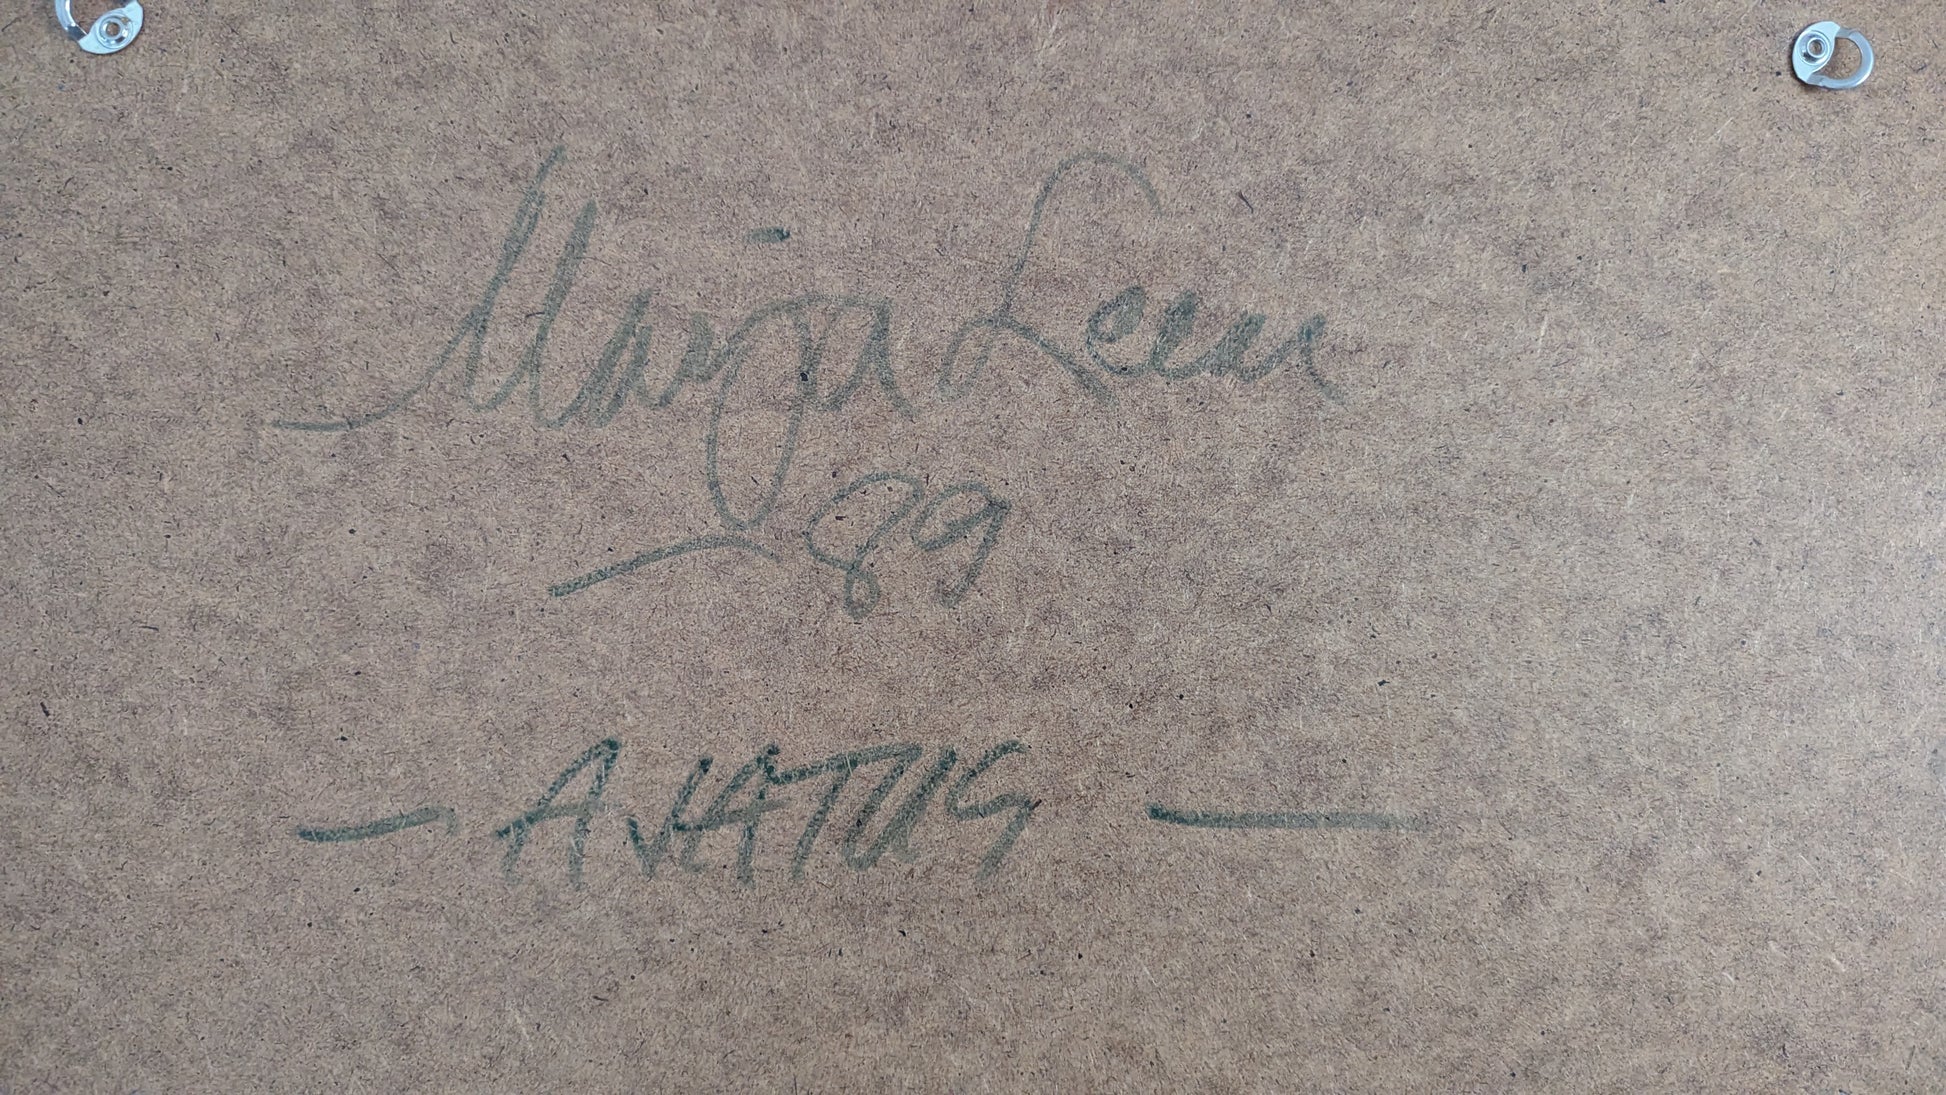 Marja Leena
89
— AJATUS —